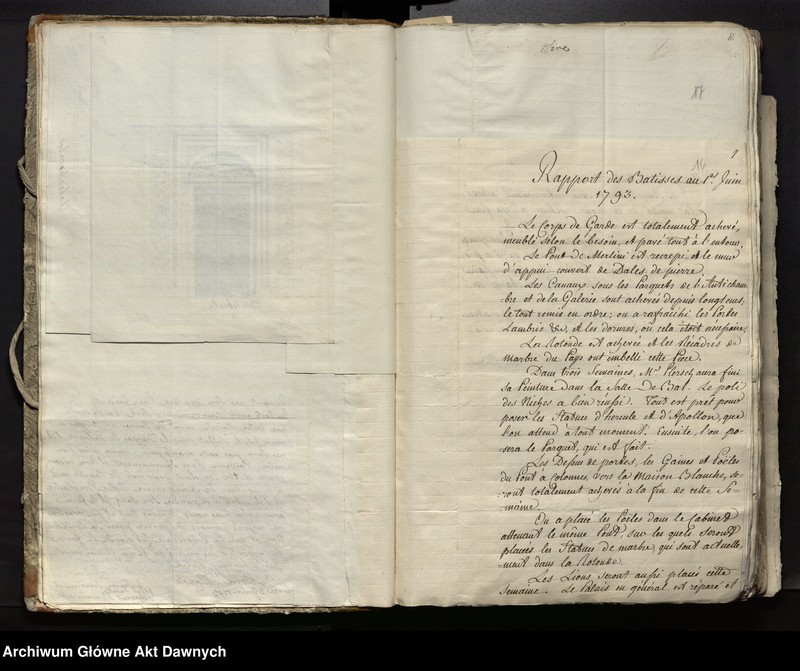 8.
Sire
17
14
9
Rapport des Batisses au 1er Juin
1793.
Le Corps de Garde est totalement achevé,
meublé selon le besoin, et pavé tout à l'entour.
Le Pont de Merlini est recrepi, et le mur
d'appui couvert de Dales de pierre.
Les Canaux sous les Parquets de l'Anticham-
-bre et de la Galerie sont achevés depuis longtems,
le tout remis en ordre; on a rafraichi les Portes
Lambris &c, et les dorures, où cela étoit
La Rotonde est achevée et les
marbre du Pays ont embelli cette Piece.
Dans trois Semaines, Mr Plersch aura fini
sa Peinture dans la Salle de Bal. Le poli
des Niches a bien reussi. Tout est prêt pour
poser les Statues d'hercule et d'Apollon, que
l'on attend à tout moment. Ensuite, l'on po-
sera le Parquet, qui est fait.
Les Dessus de portes, les Gaines et Poëles
du Pont à colonnes, vers la Maison Blanche, se-
-ront totalement achevés à la fin de cette Se-
-maine.
On a placé les Poëles dans le Cabinet
attenant le même Pont, sur les quels seront
placés les Statues de marbre, qui sont actuelle-
-ment dans la Rotonde.
Les Lions seront aussi placés cette
Semaine. Le Palais en général est réparé et
Archiwum Główne Akt Dawnych